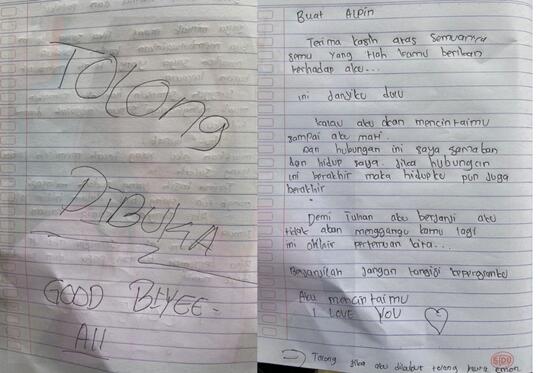 TOLONG
DIBUKA
GOOD BYYEE -
All
Buat Alpin
Terima kasih atas semuanya
semu yang tlah kamu berikan
terhadap aku...
ini janjiku dulu
kalau aku akan mencintaimu
sampai aku mati.
Dan hubungan ini saya samakan
dgn hidup saya. Jika hubungan
ini berakhir maka hidupku pun juga
berakhir
Demi Tuhan aku berjanji aku
tidak akan menggangu kamu lagi
ini akhir pertemuan kita...
Berjanjilah jangan tangisi kepergianku
Aku mencintaimu
I LOVE YOU
Tolong jika aku dikubur tolong
SIDU